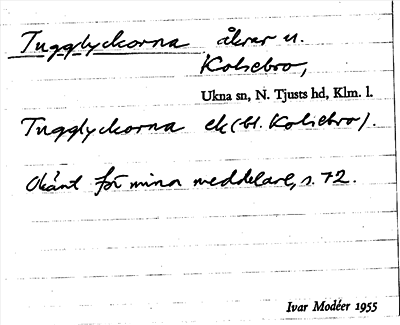 Tugglyckorna åkrar u.
Kolsebro,
Ukna sn, N. Tjusts hd, Klm. l.
Tugglyckorna ek (bl. Kolsebro).
Okänt för mina meddelare, s. 72.
Ivar Modéer 1955